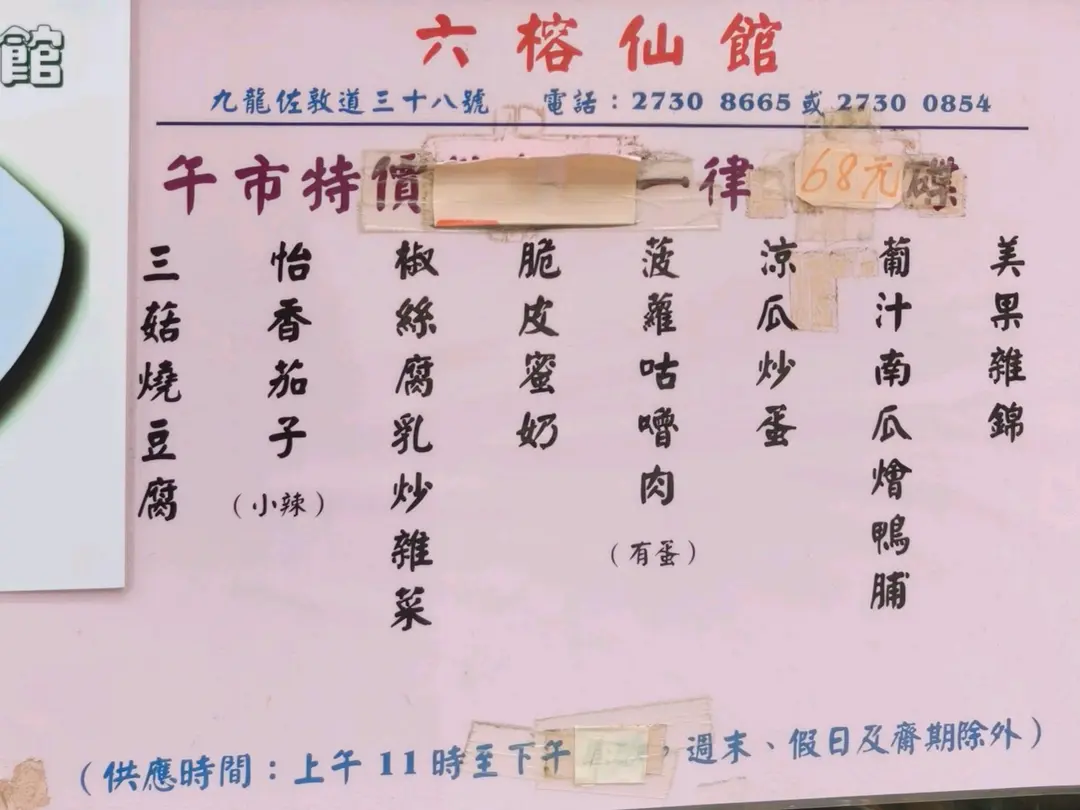 館
六榕仙館
九龍佐敦道三十八號 電話：2730 8665 或 2730 0854
午市特價 一律 68元 碟
美果雜錦
葡汁南瓜燴鴨脯
涼瓜炒蛋
菠蘿咕嚕肉
（有蛋）
脆皮蜜奶
椒絲腐乳炒雜菜
怡香茄子
（小辣）
三菇燒豆腐
（供應時間：上午11時至下午 ，週末、假日及齋期除外）